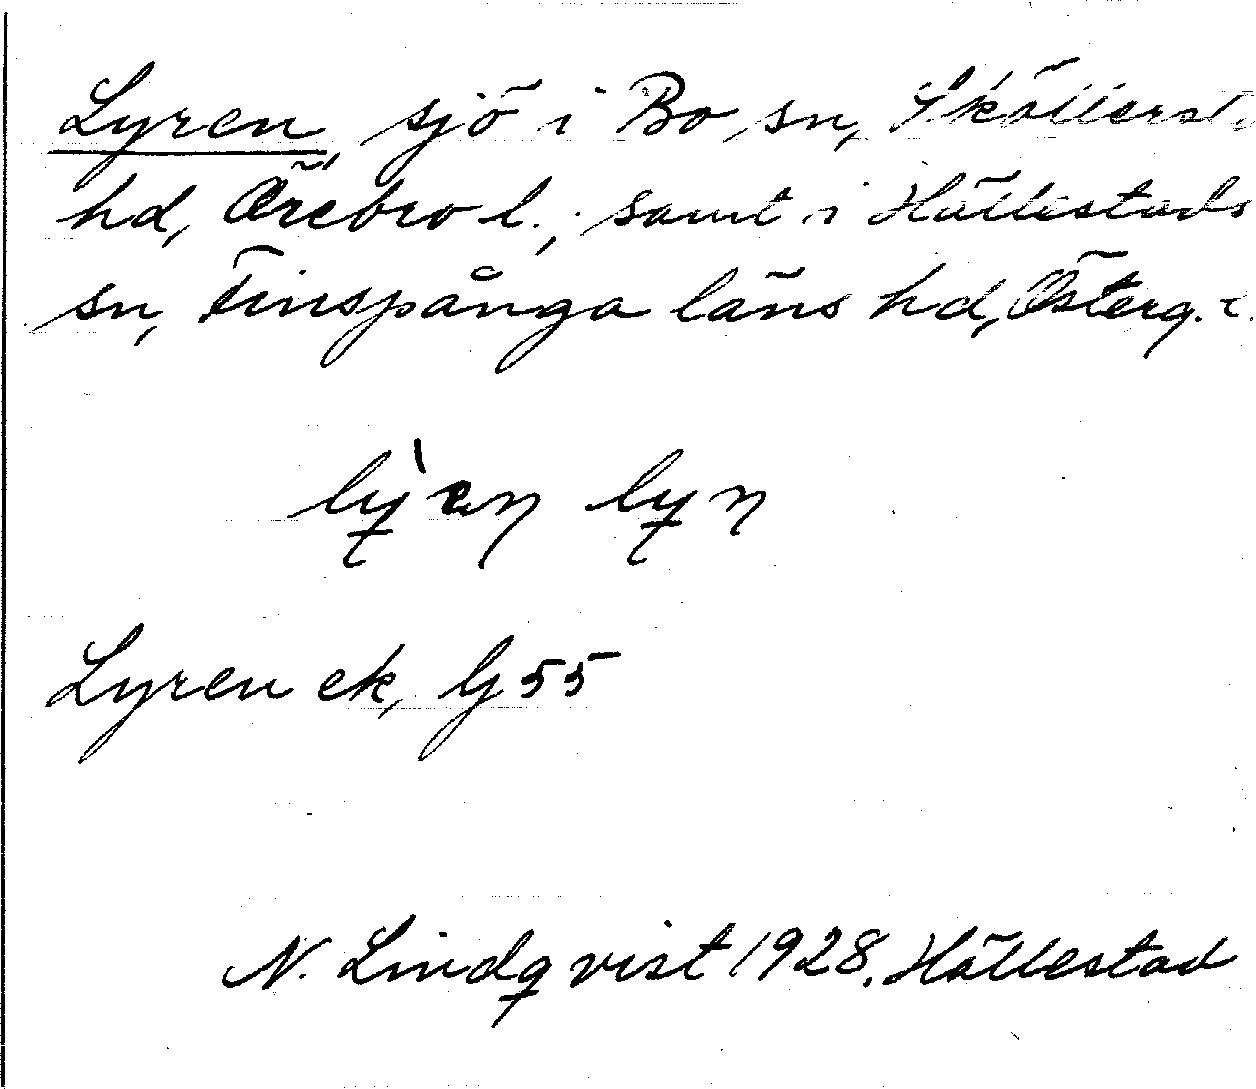 Lyren, sjö i Bo sn, Sköllerst.
hd, Örebro l., samt i Hällestads
sn, Finspånga läns hd, Österg. l.
Lyren ek, G 55
N. Lindqvist 1928, Hällestad